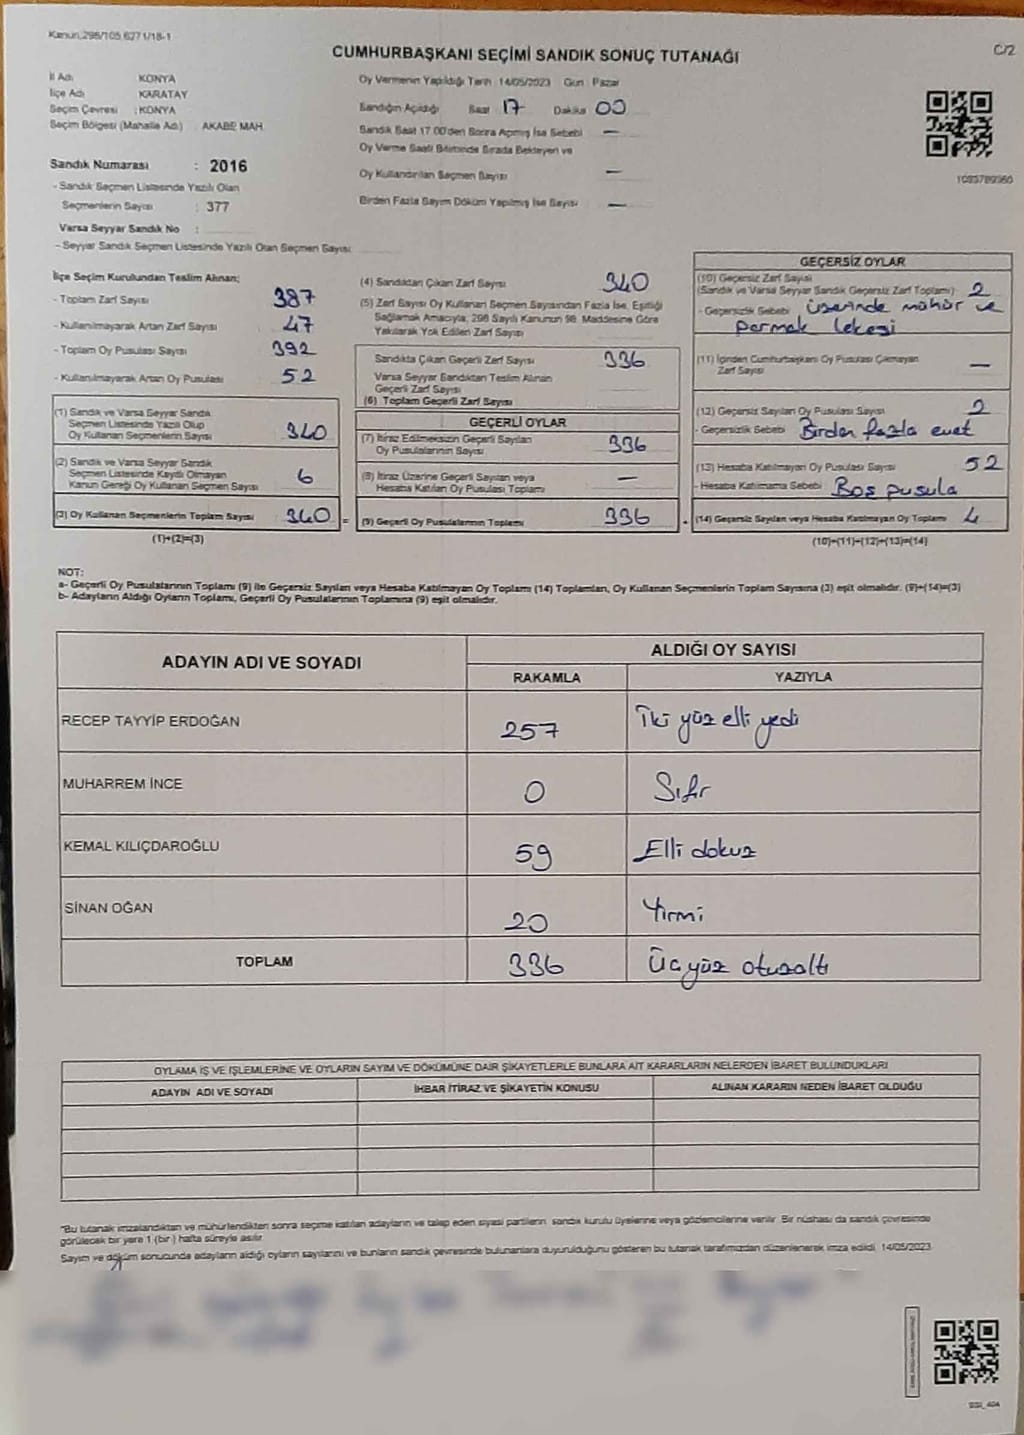 Kanun:298/105,6271/18-1
CUMHURBAŞKANI SEÇİMİ SANDIK SONUÇ TUTANAĞI
C/2
İl Adı KONYA
İlçe Adı KARATAY
Seçim Çevresi : KONYA
Seçim Bölgesi (Mahalle Adı) : AKABE MAH.
Sandık Numarası : 2016
- Sandık Seçmen Listesinde Yazılı Olan
Seçmenlerin Sayısı : 377
Varsa Seyyar Sandık No :
- Seyyar Sandık Seçmen Listesinde Yazılı Olan Seçmen Sayısı:
Oy Vermenin Yapıldığı Tarih : 14/05/2023 Gün : Pazar
Sandığın Açıldığı Saat 17 Dakika 00
Sandık Saat 17.00'den Sonra Açılmış İse Sebebi —
Oy Verme Saati Bitiminde Sırada Bekleyen ve
Oy Kullandırılan Seçmen Sayısı —
Birden Fazla Sayım Döküm Yapılmış İse Sayısı —
1093789360
İlçe Seçim Kurulundan Teslim Alınan;
- Toplam Zarf Sayısı 387
- Kullanılmayarak Artan Zarf Sayısı 47
- Toplam Oy Pusulası Sayısı 392
- Kullanılmayarak Artan Oy Pusulası 52
(1) Sandık ve Varsa Seyyar Sandık
Seçmen Listesinde Yazılı Olup
Oy Kullanan Seçmenlerin Sayısı 340
(2) Sandık ve Varsa Seyyar Sandık
Seçmen Listesinde Kayıtlı Olmayan
Kanun Gereği Oy Kullanan Seçmen Sayısı 6
(3) Oy Kullanan Seçmenlerin Toplam Sayısı 340 =
(1)+(2)=(3)
(4) Sandıktan Çıkan Zarf Sayısı 340
(5) Zarf Sayısı Oy Kullanan Seçmen Sayısından Fazla İse, Eşitliği
Sağlamak Amacıyla, 298 Sayılı Kanunun 98. Maddesine Göre
Yakılarak Yok Edilen Zarf Sayısı
Sandıkta Çıkan Geçerli Zarf Sayısı 336
Varsa Seyyar Sandıktan Teslim Alınan
Geçerli Zarf Sayısı
(6) Toplam Geçerli Zarf Sayısı
GEÇERLİ OYLAR
(7) İtiraz Edilmeksizin Geçerli Sayılan
Oy Pusulalarının Sayısı 336
(8) İtiraz Üzerine Geçerli Sayılan veya
Hesaba Katılan Oy Pusulası Toplamı —
(9) Geçerli Oy Pusulalarının Toplamı 336
GEÇERSİZ OYLAR
(10) Geçersiz Zarf Sayısı
(Sandık ve Varsa Seyyar Sandık Geçersiz Zarf Toplamı) 2
- Geçersizlik Sebebi üzerinde mühür ve
parmak lekesi
(11) İçinden Cumhurbaşkanı Oy Pusulası Çıkmayan
Zarf Sayısı —
(12) Geçersiz Sayılan Oy Pusulası Sayısı 2
- Geçersizlik Sebebi Birden fazla evet
(13) Hesaba Katılmayan Oy Pusulası Sayısı 52
- Hesaba Katılmama Sebebi Boş pusula
(14) Geçersiz Sayılan veya Hesaba Katılmayan Oy Toplamı 4
(10)+(11)+(12)+(13)=(14)
NOT:
a- Geçerli Oy Pusulalarının Toplamı (9) ile Geçersiz Sayılan veya Hesaba Katılmayan Oy Toplamı (14) Toplamları, Oy Kullanan Seçmenlerin Toplam Sayısına (3) eşit olmalıdır. (9)+(14)=(3)
b- Adayların Aldığı Oyların Toplamı, Geçerli Oy Pusulalarının Toplamına (9) eşit olmalıdır.
ADAYIN ADI VE SOYADI
ALDIĞI OY SAYISI
RAKAMLA YAZIYLA
RECEP TAYYİP ERDOĞAN 257 İki yüz elli yedi
MUHARREM İNCE 0 Sıfır
KEMAL KILIÇDAROĞLU 59 Elli dokuz
SİNAN OĞAN 20 Yirmi
TOPLAM 336 Üç yüz otuzaltı
OYLAMA İŞ VE İŞLEMLERİNE VE OYLARIN SAYIM VE DÖKÜMÜNE DAİR ŞİKAYETLERLE BUNLARA AİT KARARLARIN NELERDEN İBARET BULUNDUKLARI
ADAYIN ADI VE SOYADI İHBAR İTİRAZ VE ŞİKAYETİN KONUSU ALINAN KARARIN NEDEN İBARET OLDUĞU
"Bu tutanak imzalandıktan ve mühürlendikten sonra seçime katılan adayların ve talep eden siyasi partilerin sandık kurulu üyelerine veya gözlemcilerine verilir. Bir nüshası da sandık çevresinde
görülecek bir yere 1 (bir) hafta süreyle asılır.
Sayım ve döküm sonucunda adayların aldığı oyların sayılarını ve bunların sandık çevresinde bulunanlara duyurulduğunu gösteren bu tutanak tarafımızdan düzenlenerek imza edildi. 14/05/2023